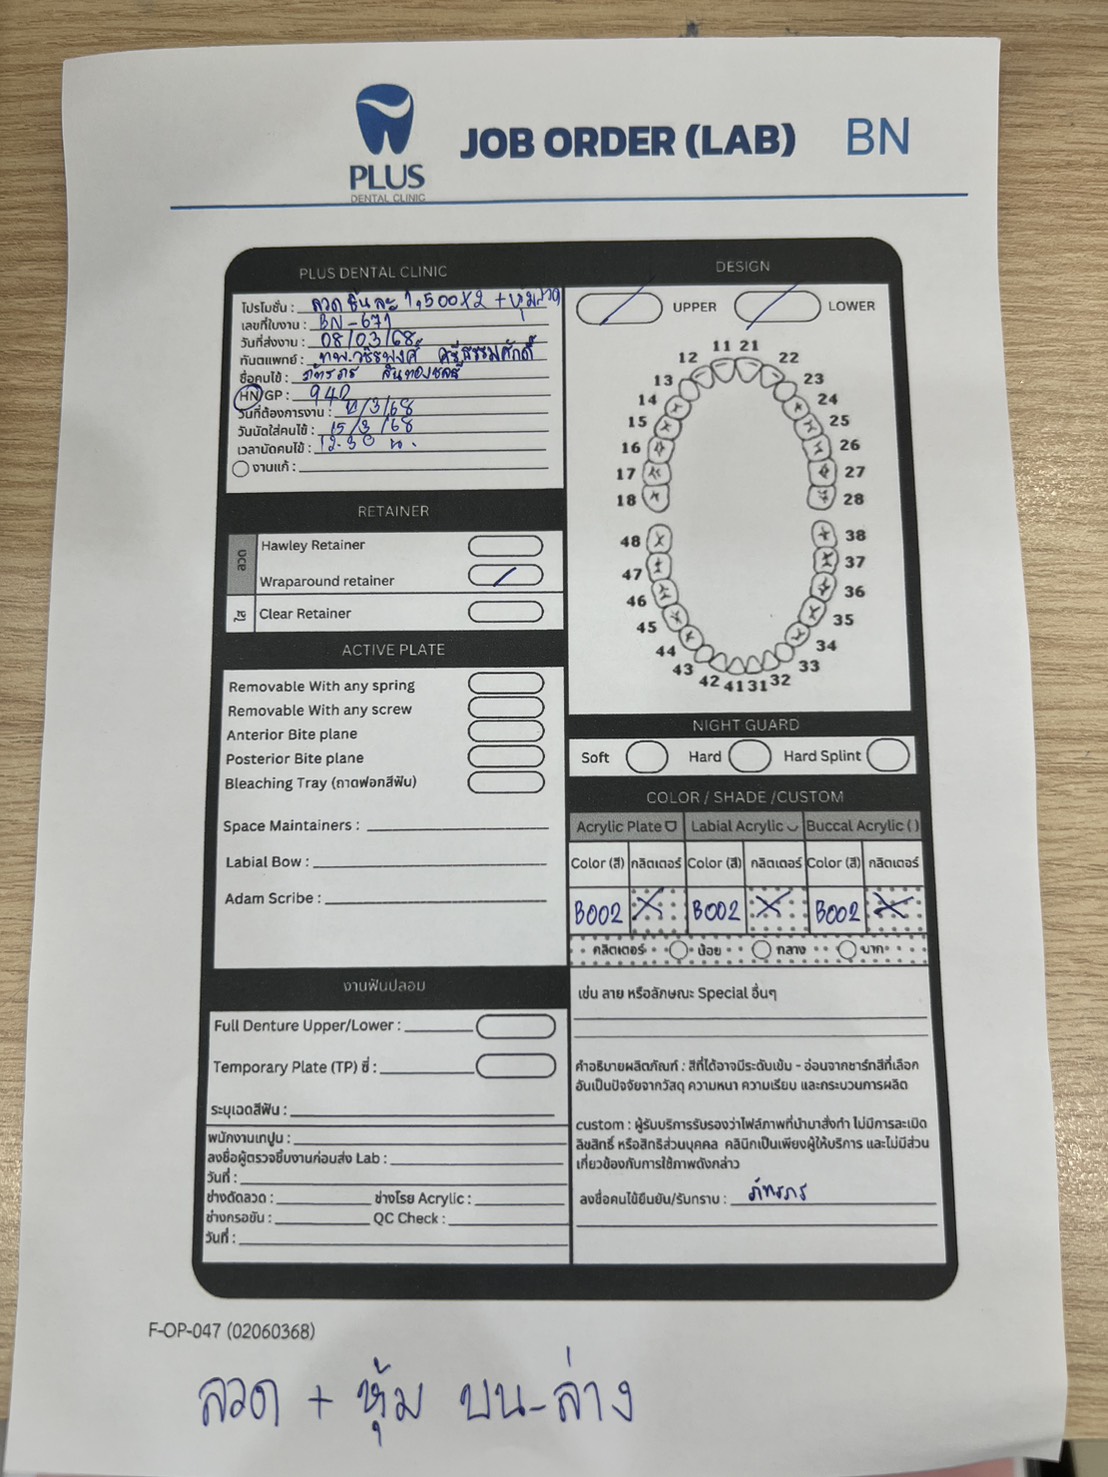 PLUS
DENTAL CLINIC
JOB ORDER (LAB) BN
PLUS DENTAL CLINIC
โปรโมชั่น : ลวด ชิ้นละ 1,500x2 + หุ้มลวด
เลขที่ใบงาน : BN-671
วันที่ส่งงาน : 08/03/68
ทันตแพทย์ : ทพ.วชิรพงศ์ ศรีธรรมศักดิ์
ชื่อคนไข้ : ภัทรภร
HN/GP : 940
วันที่ต้องการงาน : 11/3/68
วันนัดใส่คนไข้ : 15/3/68
เวลานัดคนไข้ : 12.30 น.
งานแก้ :
RETAINER
ลวด
Hawley Retainer
Wraparound retainer
ใส
Clear Retainer
ACTIVE PLATE
Removable With any spring
Removable With any screw
Anterior Bite plane
Posterior Bite plane
Bleaching Tray (ถาดฟอกสีฟัน)
Space Maintainers :
Labial Bow :
Adam Scribe :
งานฟันปลอม
Full Denture Upper/Lower :
Temporary Plate (TP) ซี่ :
ระบุเฉดสีฟัน :
พนักงานเทปูน :
ลงชื่อผู้ตรวจชิ้นงานก่อนส่ง Lab :
วันที่ :
ช่างดัดลวด : ช่างโรย Acrylic :
ช่างกรอขัน : QC Check :
วันที่ :
DESIGN
UPPER LOWER
11 21
12 22
13 23
14 24
15 25
16 26
17 27
18 28
48 38
47 37
46 36
45 35
44 34
43 33
42 41 31 32
NIGHT GUARD
Soft Hard Hard Splint
COLOR / SHADE /CUSTOM
Acrylic Plate Labial Acrylic Buccal Acrylic ( )
Color (สี) กลิตเตอร์ Color (สี) กลิตเตอร์ Color (สี) กลิตเตอร์
B002 B002 B002
กลิตเตอร์ น้อย กลาง มาก
เช่น ลาย หรือลักษณะ Special อื่นๆ
คำอธิบายผลิตภัณฑ์ : สีที่ได้อาจมีระดับเข้ม - อ่อนจากชาร์ทสีที่เลือก
อันเป็นปัจจัยจากวัสดุ ความหนา ความเรียบ และกระบวนการผลิต
custom : ผู้รับบริการรับรองว่าไฟล์ภาพที่นำมาสั่งทำ ไม่มีการละเมิด
ลิขสิทธิ์ หรือสิทธิส่วนบุคคล คลินิกเป็นเพียงผู้ให้บริการ และไม่มีส่วน
เกี่ยวข้องกับการใช้ภาพดังกล่าว
ลงชื่อคนไข้ยืนยัน/รับทราบ : ภัทรภร
F-OP-047 (02060368)
ลวด + หุ้ม บน-ล่าง